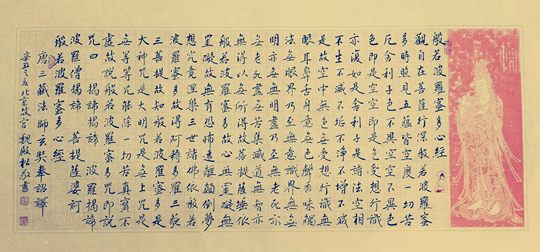 般若波羅蜜多心經
觀自在菩薩行深般若波羅蜜
多時照見五蘊皆空度一切苦
厄舍利子色不異空空不異色
色即是空空即是色受想行識
亦復如是舍利子是諸法空相
不生不滅不垢不淨不增不減
是故空中無色無受想行識無
眼耳鼻舌身意無色聲香味觸
法無眼界乃至無意識界無無
明亦無無明盡乃至無老死亦
無老死盡無苦集滅道無智亦
無得以無所得故菩提薩埵依
般若波羅蜜多故心無罣礙無
罣礙故無有恐怖遠離顛倒夢
想究竟涅槃三世諸佛依般若
波羅蜜多故得阿耨多羅三藐
三菩提故知般若波羅蜜多是
大神咒是大明咒是無上咒是
無等等咒能除一切苦真實不
虛故說般若波羅蜜多咒即說
咒曰 揭諦揭諦 波羅揭諦
波羅僧揭諦 菩提薩婆訶
般若波羅蜜多心經
唐三藏法師玄奘奉詔譯
辛丑之 北京故宮 魏殿松敬書